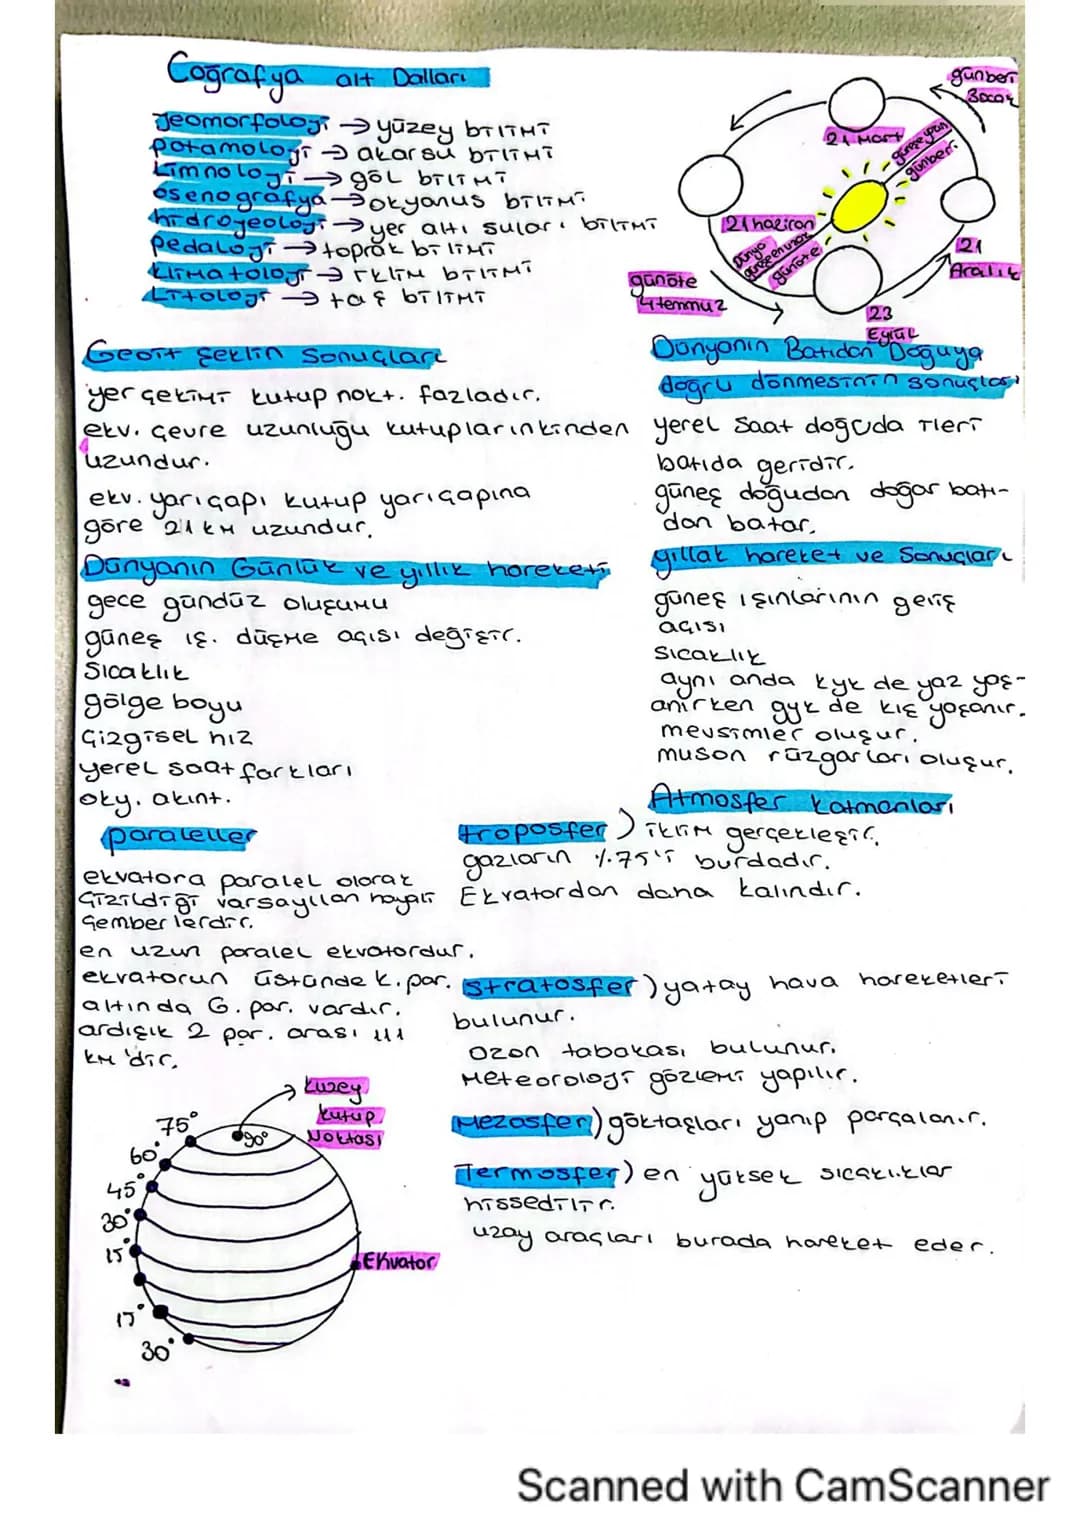 Coğrafya alt Dalları
Jeomorfoloji → yüzey bilimi
potamoloji → akarsu bilimi
Limnoloji → göl bilimi
osenografya → okyanus bilimi
hidrojeoloji → yer altı suları bilimi
pedaloji → toprak bilimi
klimatoloji → iklim bilimi
Litoloji → taş bilimi
günberi
3 ocak
21 Mart
güneşe yakın
günberi
21 haziran
Dünya
güneşe en uzak
günöte
21
Aralık
günöte
4 temmuz
23
Eylül
Geoit Şeklin Sonuçları
yer çekimi kutup nokt. fazladır.
ekv. çevre uzunluğu kutuplarınkinden
uzundur.
ekv. yarıçapı kutup yarıçapına
göre 21 km uzundur.
Dünyanın Günlük ve yıllık hareketi
gece gündüz oluşumu
güneş ış. düşme açısı değişir.
Sıcaklık
gölge boyu
Çizgisel hız
yerel saat farkları
oky. akınt.
Dünyanın Batıdan Doğuya
doğru dönmesinin sonuçları
yerel saat doğuda ileri
batıda geridir.
güneş doğudan doğar batı-
dan batar.
yıllak hareket ve Sonuçları
güneş ışınlarının geliş
açısı
Sıcaklık
aynı anda kyk de yaz yaş-
anırken gyk de kış yaşanır.
mevsimler oluşur.
muson rüzgarları oluşur.
paraleller
ekvatora paralel olarak
Çizildiği varsayılan hayali
Çemberlerdir.
en uzun paralel ekvatordur.
ekvatorun üstünde k. par.
altında G. par. vardır.
ardışık 2 par. arası 111
km'dir.
Atmosfer Katmanları
troposfer) iklim gerçekleşir.
gazların %75'i burdadır.
Ekvatordan daha kalındır.
Stratosfer) yatay hava hareketleri
bulunur.
Ozon tabakası bulunur.
Meteoroloji gözlemi yapılır.
Mezosfer) göktaşları yanıp parçalanır.
Termosfer) en yüksek sıcaklıklar
hissedilir.
uzay araçları burada hareket eder.
Kuzey
kutup
Noktası
90°
75°
60°
45°
30°
15°
Ekvator
15°
30°
Scanned with CamScanner